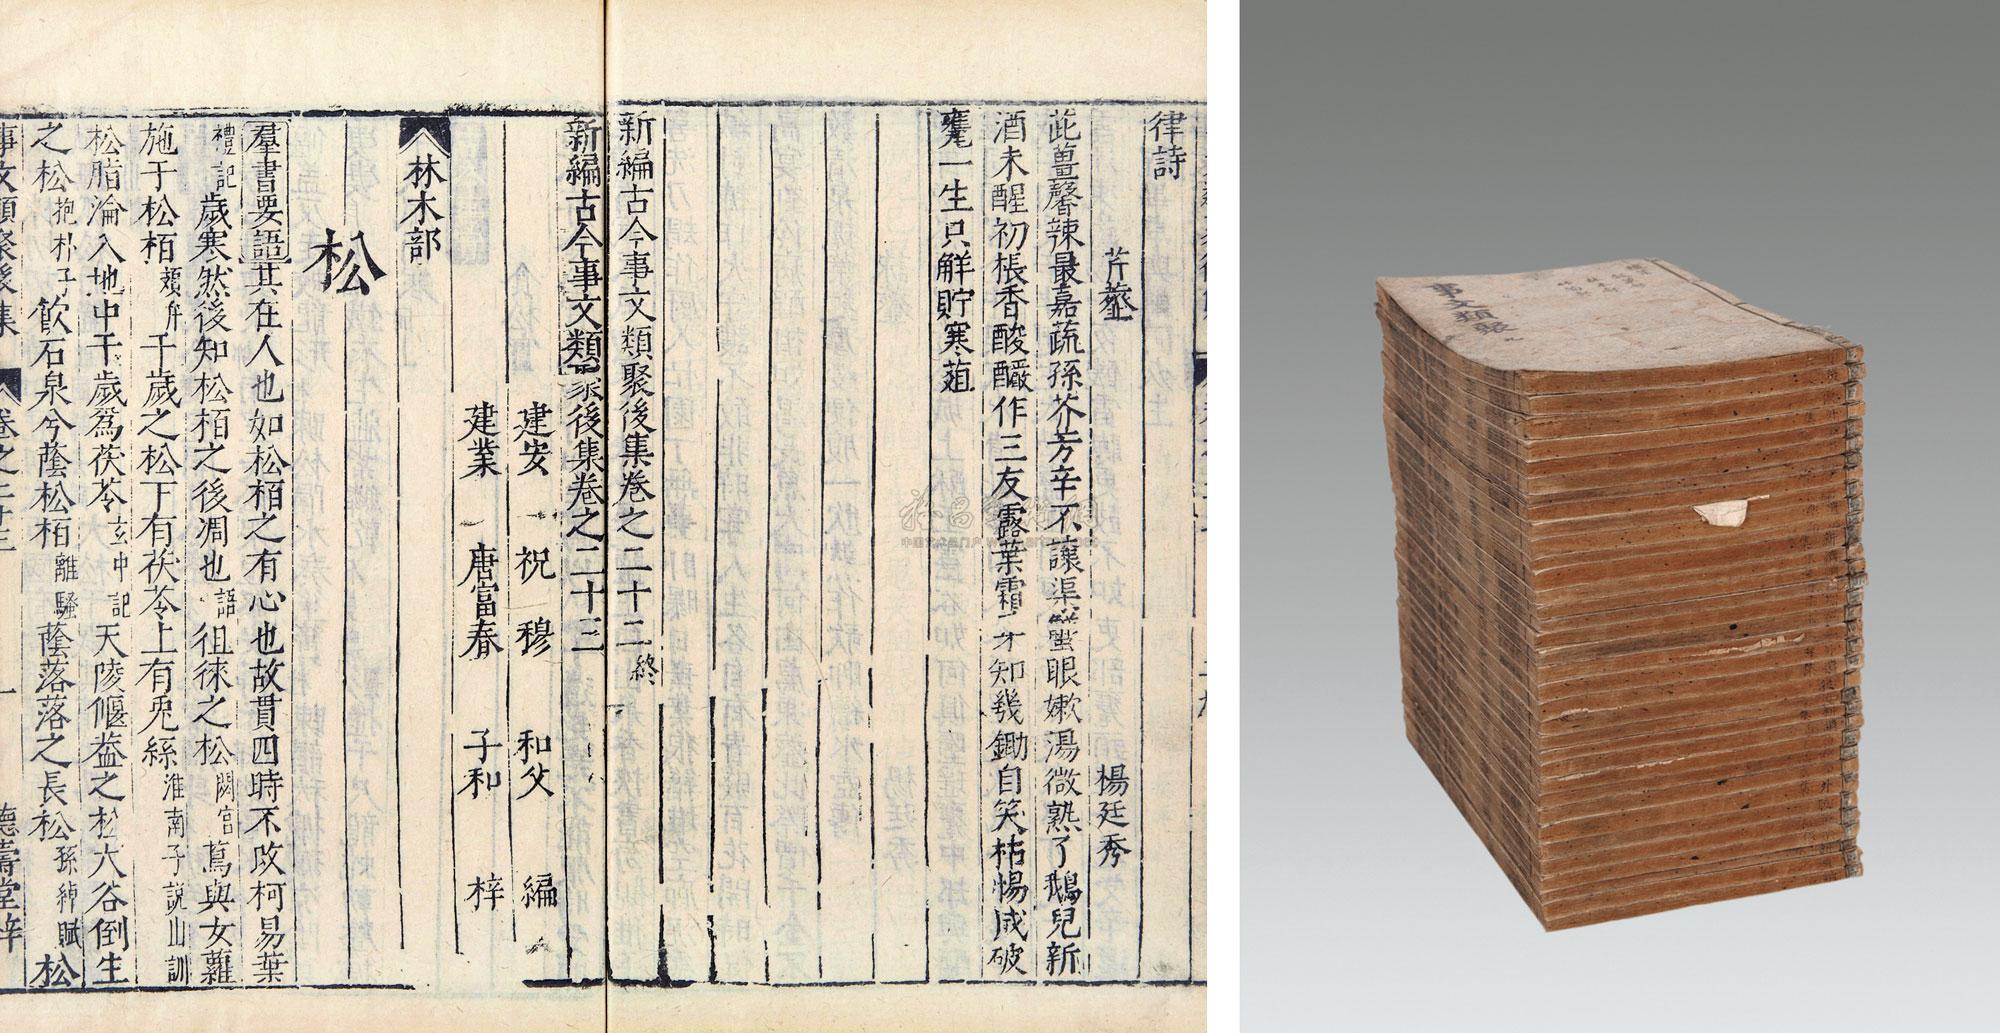 律詩
芹虀　楊廷秀
茈薑馨辣最嘉蔬孫芥芳辛不讓渠蟹眼嫰湯微熟了鵝兒新
酒未醒初棖香酸釅作三友露葉霜牙知幾鋤自笑枯惕成破
甕一生只解貯寒葅
新編古今事文類聚後集卷之二十二終
新編古今事文類聚後集卷之二十三
建安　祝穆　和父　編
建業　唐富春　子和　梓
林木部
松
羣書要語其在人也如松栢之有心也故貫四時不改柯易葉
禮記歲寒然後知松栢之後凋也語徂徠之松閟宮蔦與女蘿
施于松栢頍弁千歲之松下有茯苓上有兎絲淮南子說山訓
松脂淪入地中千歲爲茯苓玄中記天陵偃葢之松大谷倒生
之松抱朴子飲石泉兮蔭松栢離騷蔭落落之長松孫綽賦松
事文類聚後集　卷之二十三　一　德壽堂梓
事文類聚